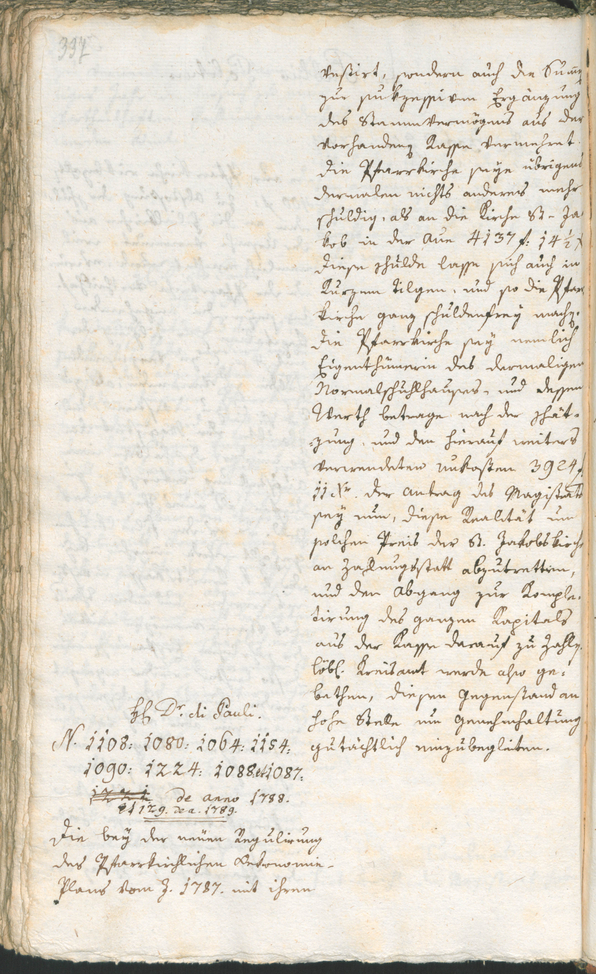 337
vestirt, sondern auch die Summe
zur sukzessiven Ergänzung
des Stammvermögens aus der
vorhandenen Kasse vermehret.
die Pfarrkirche seye übrigens
dermalen nichts anderes mehr
schuldig, als an die Kirche St. Ja-
kob in der Aue 4137 f: 14½ x
diese Schulde lasse sich auch in
kurzem tilgen, und so die Pfarr
kirche ganz schuldenfrey machen.
die Pfarrkirche sey nemlich
Eigenthümerin des dermaligen
Normalschuhlhauses, und dessen
Werth betrage nach der Schät-
zung, und den hierauf weiters
verwendeten unkosten 3924 f
11 xr. der Antrag des Magistrats
sey nun, diese Realität um
solchen Preis der St. Jakobskirche
an Zahlungsstatt abzutretten,
und den Abgang zur Komple-
tirung des ganzen Kapitals
aus der Kasse darauf zu zahlen
löbl. Kreisamt werde also ge-
bethen, diesen Gegenstand an
hohe Stelle um Genehmhaltung
gutächtlich einzubegleiten.
H. Dr. di Pauli.
N. 1108: 1080: 1064: 1154:
1090: 1224: 1088 et 1087.
de anno 1788.
et 1129. de a. 1789.
Die bey der neuen Regulirung
des Pfarrkirchlichen Oekonomie-
Plans vom J. 1787. mit ihren